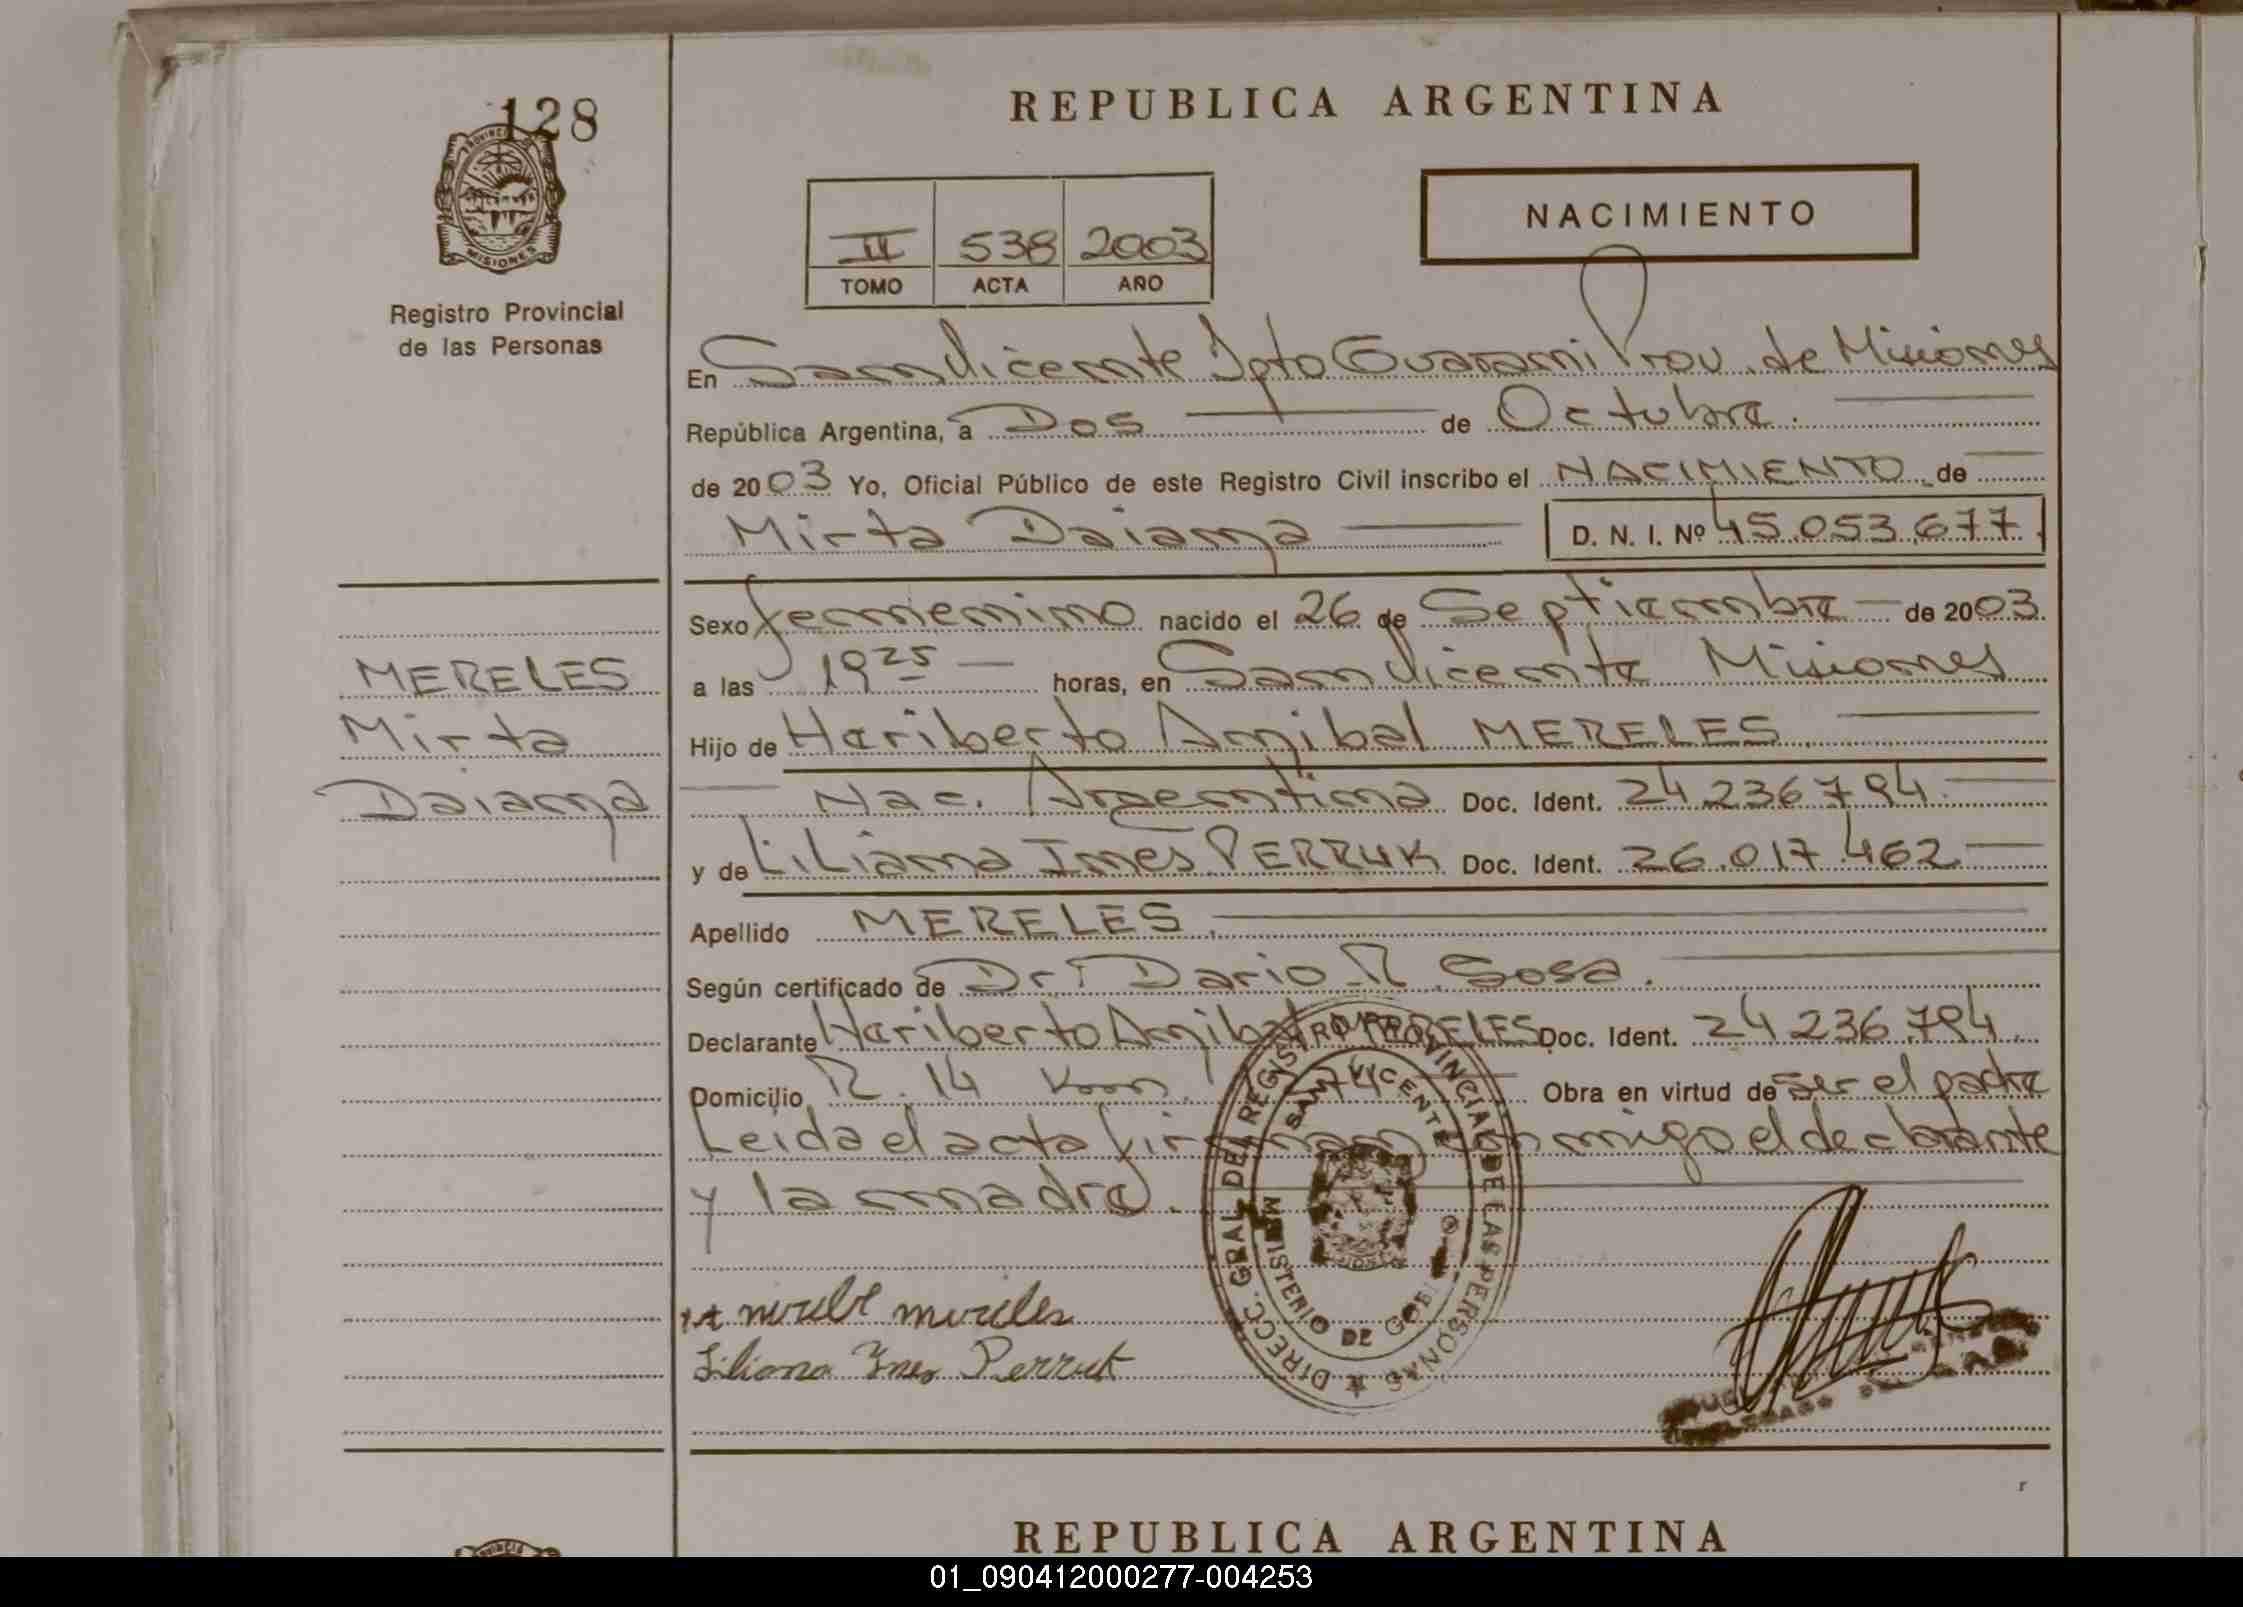 128
PROVINCIA
MISIONES
Registro Provincial
de las Personas
REPUBLICA ARGENTINA
NACIMIENTO
II 538 2003
TOMO ACTA AÑO
En San Vicente Dpto Guarani Prov. de Misiones
República Argentina, a Dos de Octubre.
de 2003 Yo, Oficial Público de este Registro Civil inscribo el NACIMIENTO de
Mirta Daiana D. N. I. Nº 45.053.677.
Sexo femenino nacido el 26 de Septiembre de 2003.
a las 19 25 horas, en San Vicente Misiones
Hijo de Heriberto Anibal MERELES
Nac. Argentina Doc. Ident. 24 236 794
y de Liliana Ines PERRUK Doc. Ident. 26.017.462
Apellido MERELES.
Según certificado de Dr: Dario R. Sosa.
Declarante Heriberto Anibal MERELES Doc. Ident. 24 236.794.
Domicilio R. 14 Km. Obra en virtud de ser el padre
Leida el acta firman conmigo el declarante
y la madre.
MERELES
Mirta
Daiana
mereles
Liliana Ines Perruk
DIRECC. GRAL. DEL REGISTRO PROVINCIAL DE LAS PERSONAS
SAN VICENTE
MINISTERIO DE
REPUBLICA ARGENTINA
01_090412000277-004253